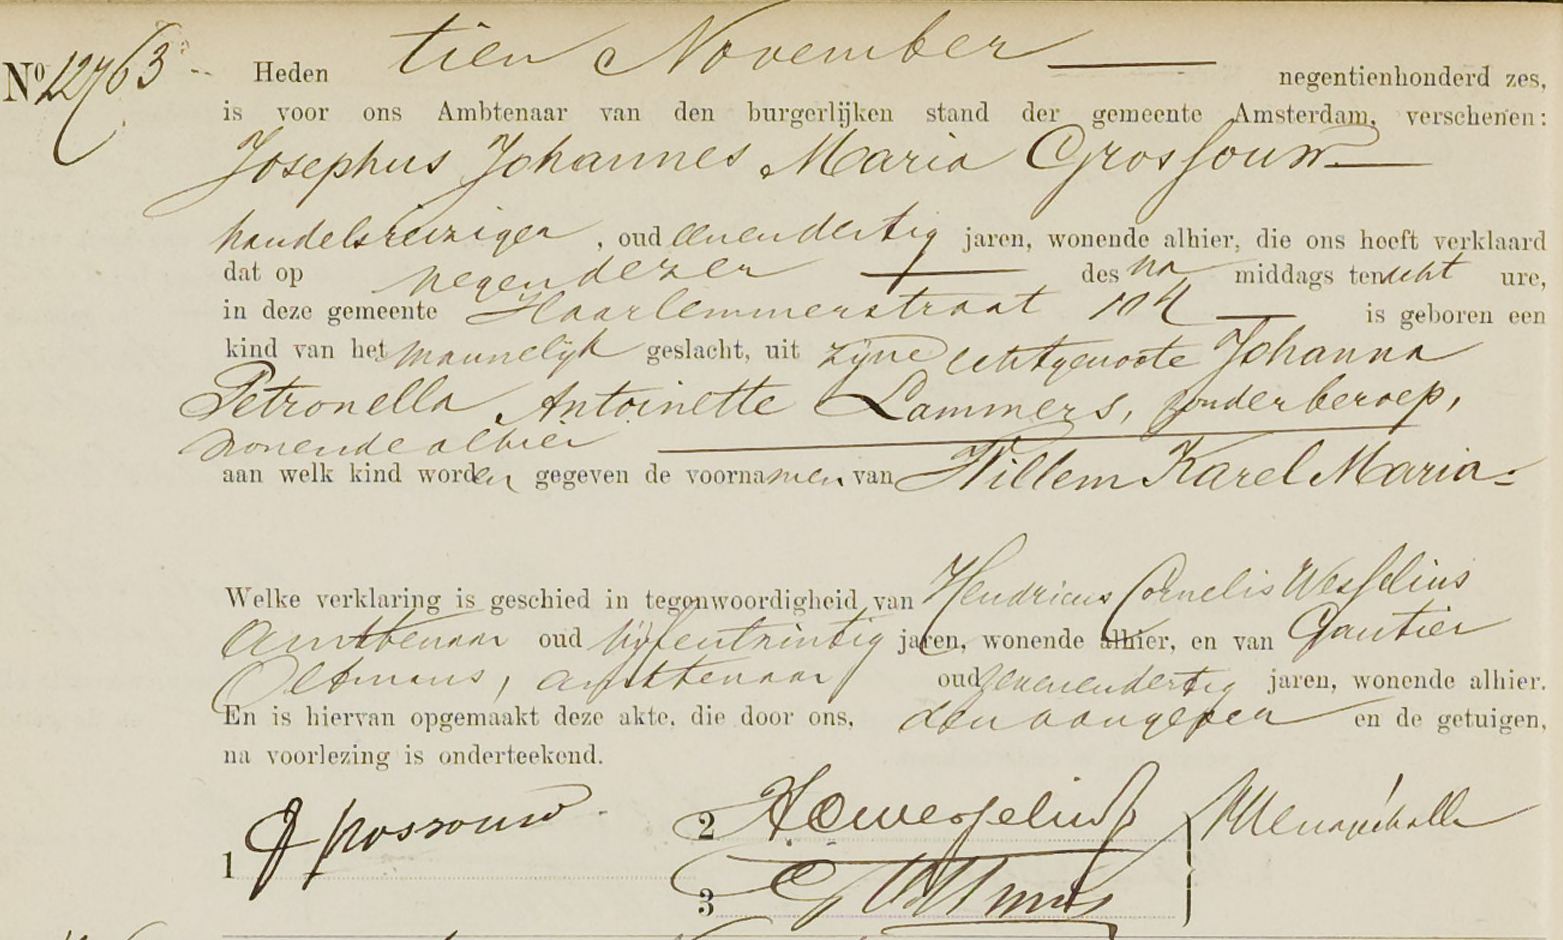 No 12763 Heden tien November negentienhonderd zes,
is voor ons Ambtenaar van den burgerlijken stand der gemeente Amsterdam, verschenen:
Josephus Johannes Maria Grossouw
handelsreiziger, oud eenendertig jaren, wonende alhier, die ons heeft verklaard
dat op negen dezer des na middags ten acht ure,
in deze gemeente Haarlemmerstraat 104 is geboren een
kind van het mannelijk geslacht, uit zijne echtgenoote Johanna
Petronella Antoinette Lammers, zonder beroep,
wonende alhier
aan welk kind worden gegeven de voornamen van Willem Karel Maria
Welke verklaring is geschied in tegenwoordigheid van Hendricus Cornelis Wesselius
Ambtenaar oud vijfentwintig jaren, wonende alhier, en van Gautier
Oltmans, ambtenaar oud zevenendertig jaren, wonende alhier.
En is hiervan opgemaakt deze akte, die door ons, den aangever en de getuigen,
na voorlezing is onderteekend.
1 J Grossouw 2 HCWesselius
3 G Oltmans